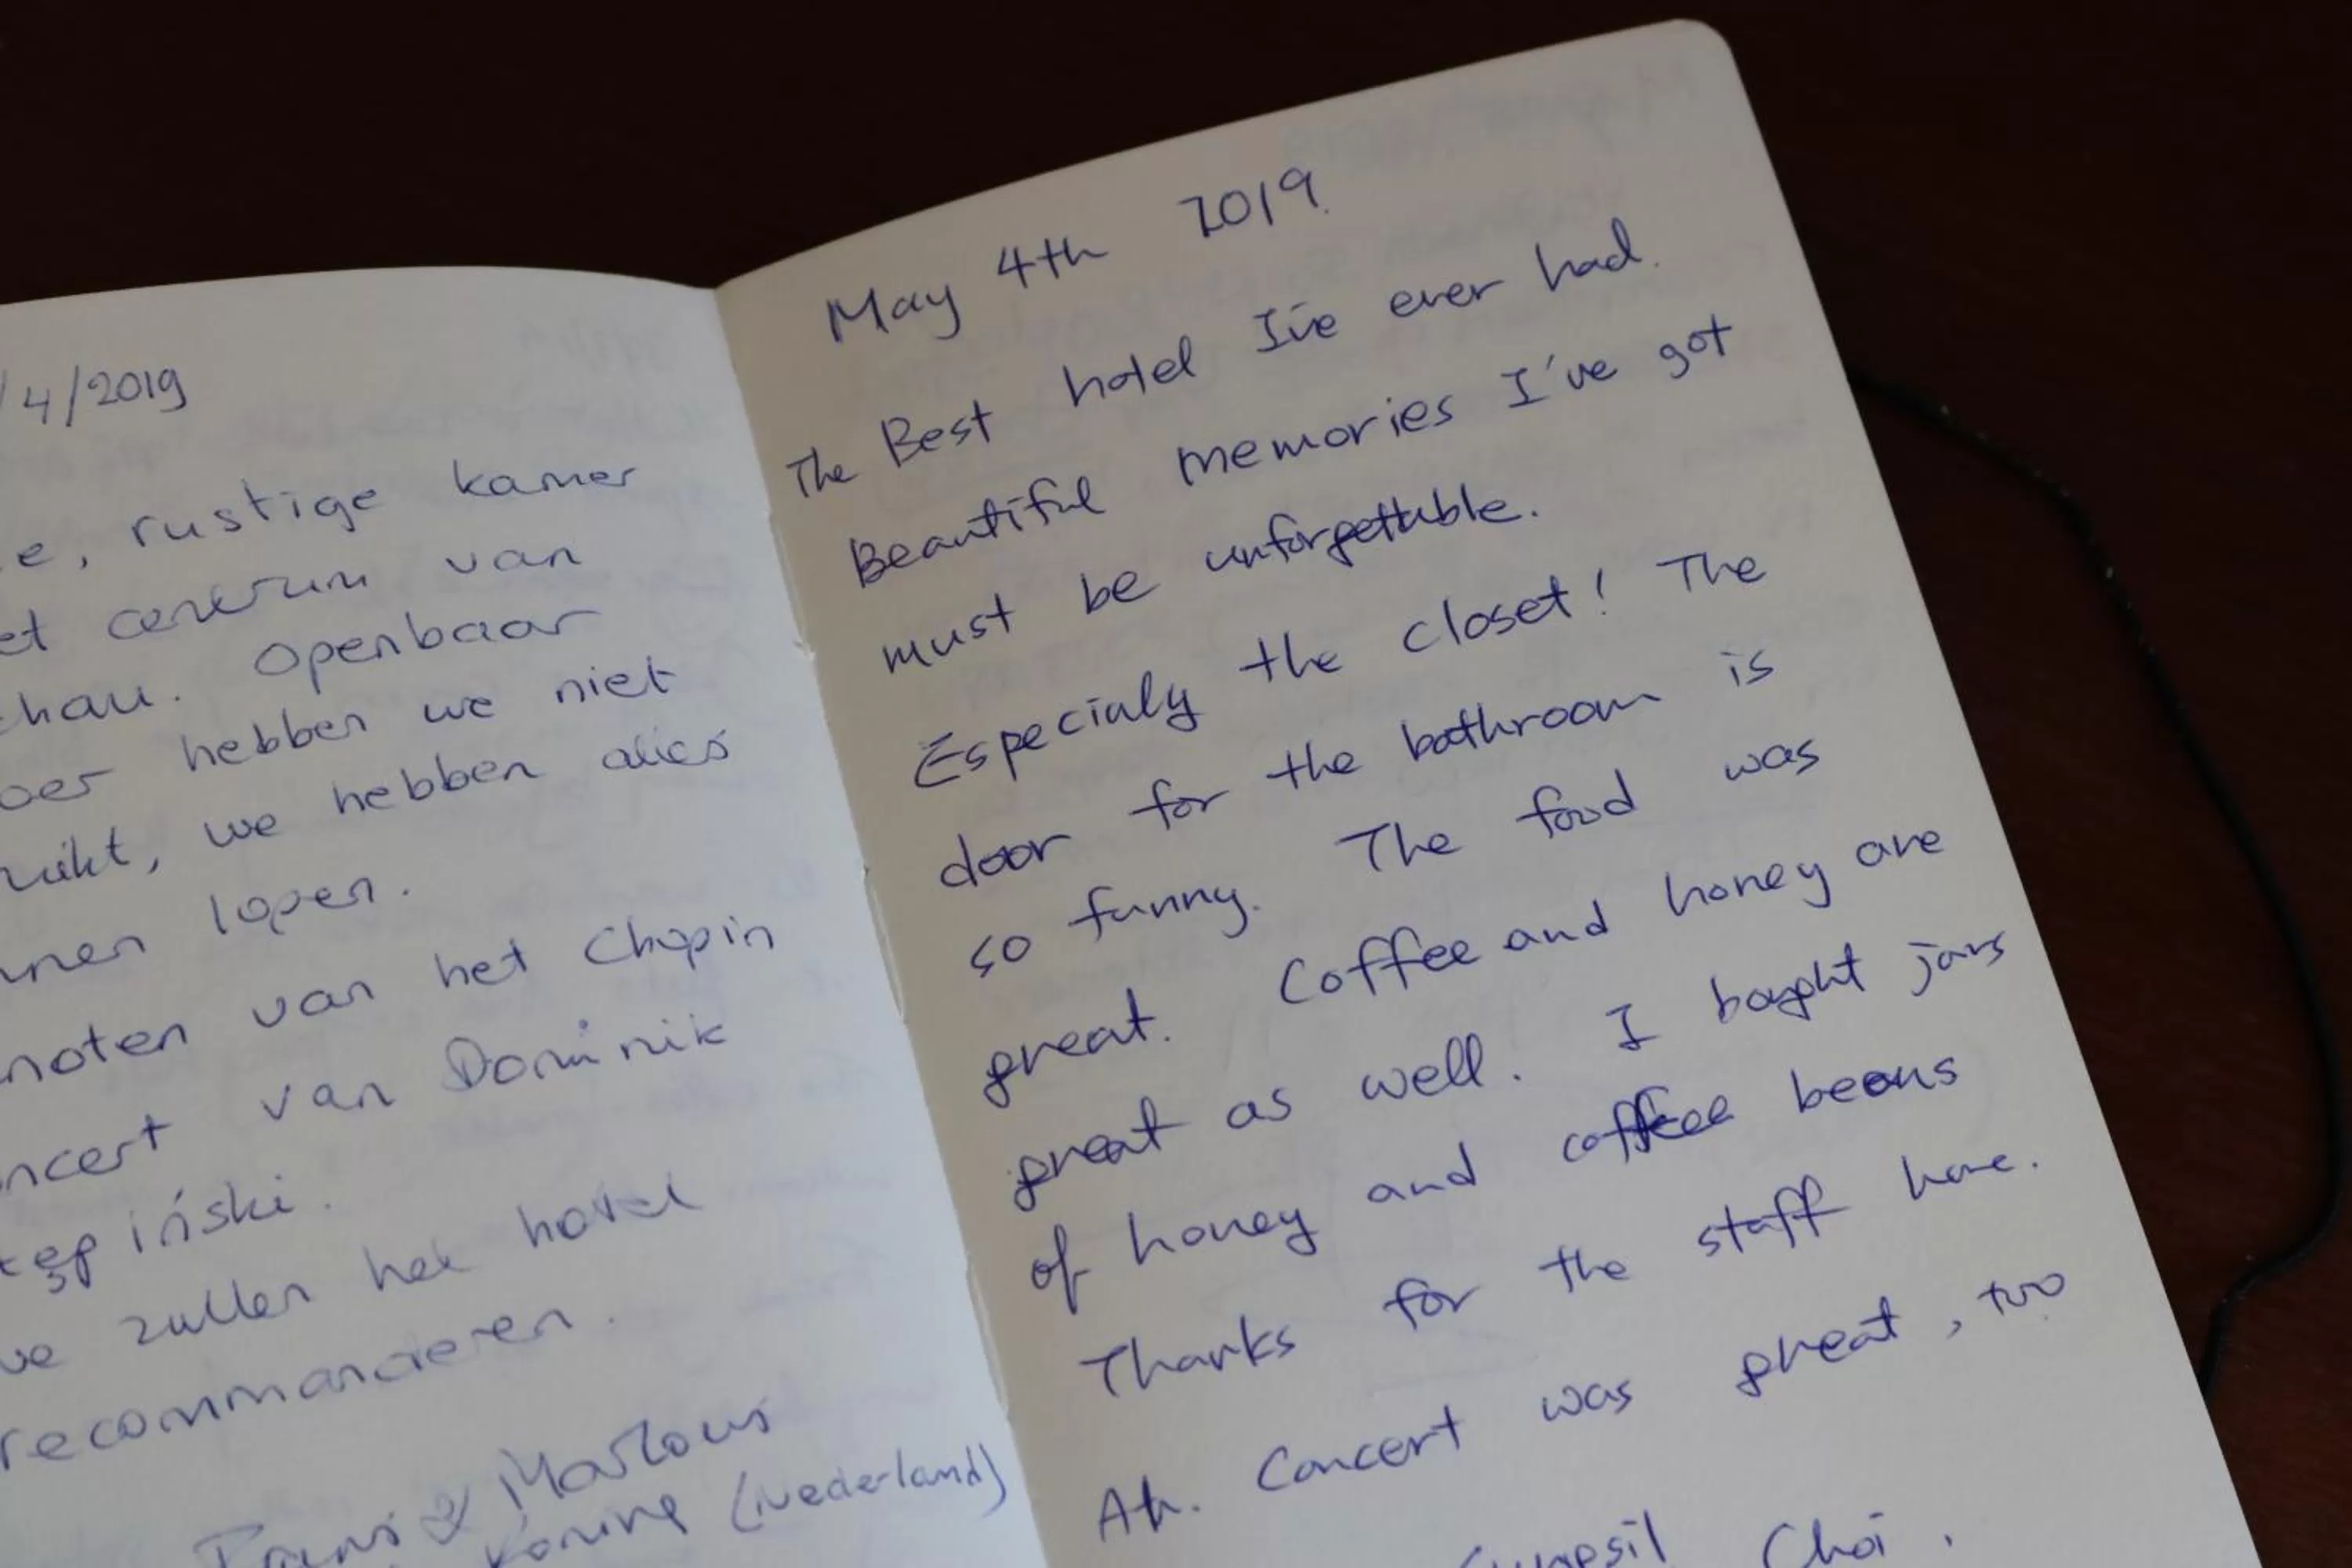 /4/2019
e, rustige kamer
et centrum van
chau. Openbaar
oer hebben we niet
uikt, we hebben alles
nnen lopen.
noten van het Chopin
ncert van Dominik
tępiński.
we zullen het hotel
recommanderen.
& Marlous
Konine (Nederland)
May 4th 2019.
The Best hotel I've ever had.
Beautiful memories I've got
must be unforgettable.
Especialy the closet! The
door for the bathroom is
so funny. The food was
great. Coffee and honey are
great as well. I bought jars
of honey and coffee beans
Thanks for the staff here.
Ah. Concert was great, too
Choi.